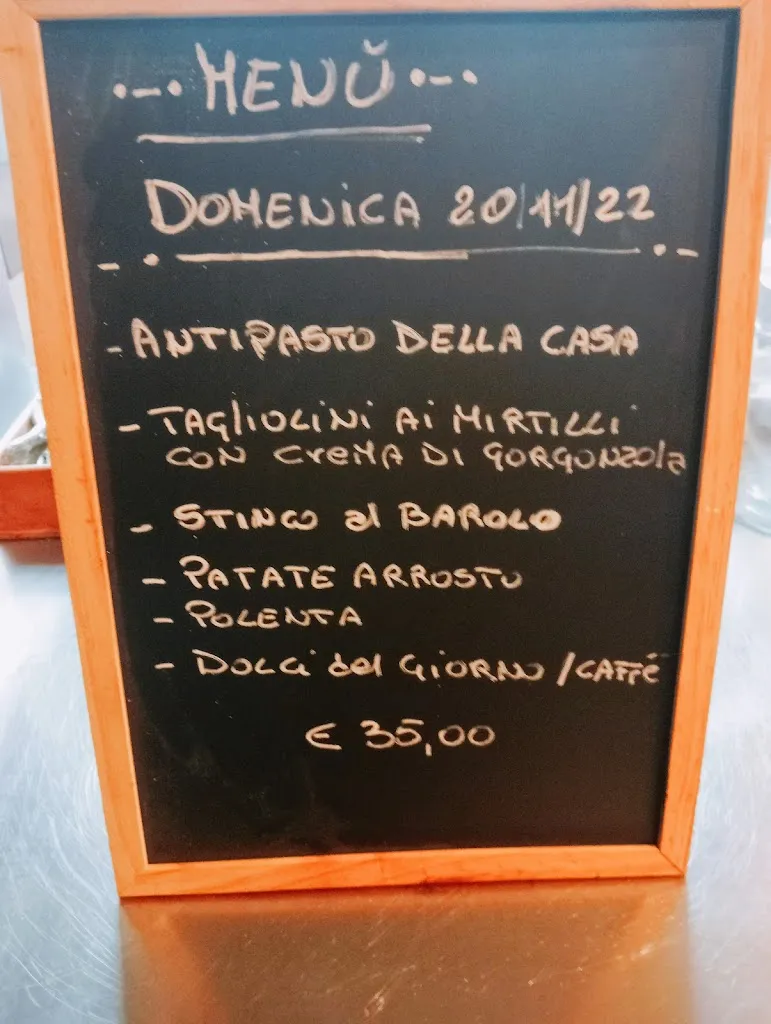 ·-· MENŬ ·-·
DOMENICA 20/11/22
- ANTIPASTO DELLA CASA
- TAGLIOLINI AI MIRTILLI
CON CREMA DI GORGONZOLA
- STINCO al BAROLO
- PATATE ARROSTO
- POLENTA
- DOLCI del GIORNO / CAFFÉ
€ 35,00